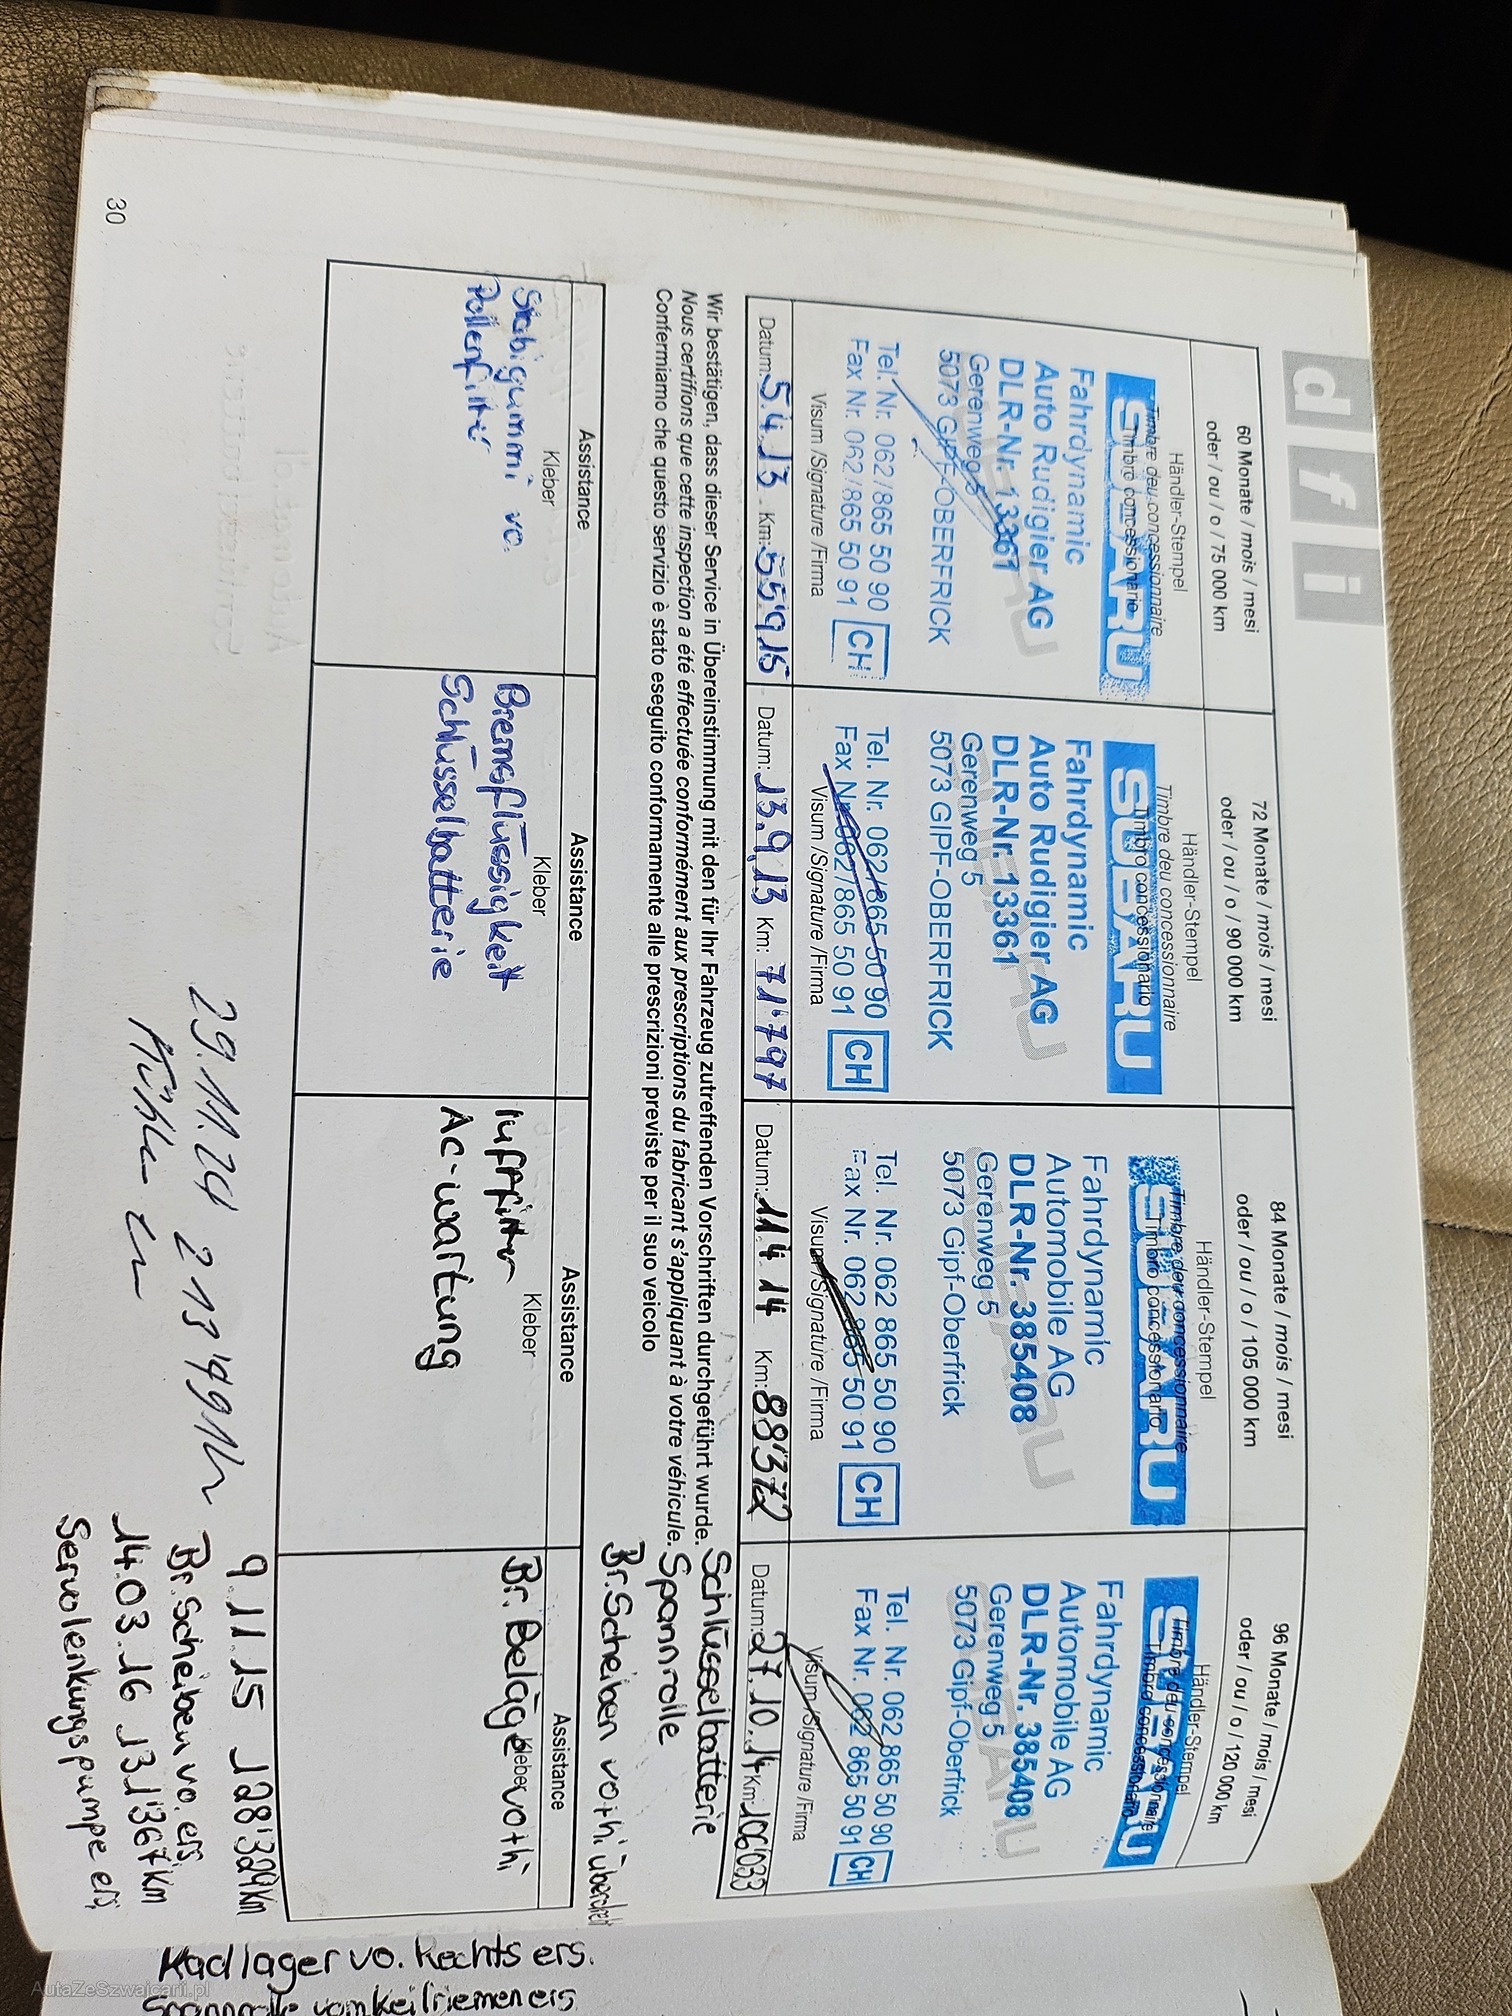 d f i
60 Monate / mois / mesi
oder / ou / o / 75 000 km
Händler-Stempel
Timbre deu concessionnaire
Timbro concessionario
SUBARU
Fahrdynamic
Auto Rudigier AG
DLR-Nr. 13361
Gerenweg 5
5073 GIPF-OBERFRICK
Tel. Nr. 062/865 50 90
Fax Nr. 062/865 50 91 CH
Visum /Signature /Firma
Datum: 5.4.13 Km: 55'915
72 Monate / mois / mesi
oder / ou / o / 90 000 km
Händler-Stempel
Timbre deu concessionnaire
Timbro concessionario
SUBARU
Fahrdynamic
Auto Rudigier AG
DLR-Nr. 13361
Gerenweg 5
5073 GIPF-OBERFRICK
Tel. Nr. 062/865 50 90
Fax Nr. 062/865 50 91 CH
Visum /Signature /Firma
Datum: 13.9.13 Km: 71'797
84 Monate / mois / mesi
oder / ou / o / 105 000 km
Händler-Stempel
Timbre deu concessionnaire
Timbro concessionario
SUBARU
Fahrdynamic
Automobile AG
DLR-Nr. 385408
Gerenweg 5
5073 Gipf-Oberfrick
Tel. Nr. 062 865 50 90
Fax Nr. 062 865 50 91 CH
Visum /Signature /Firma
Datum: 11.4.14 Km: 88'372
96 Monate / mois / mesi
oder / ou / o / 120 000 km
Händler-Stempel
Timbre deu concessionnaire
Timbro concessionario
SUBARU
Fahrdynamic
Automobile AG
DLR-Nr. 385408
Gerenweg 5
5073 Gipf-Oberfrick
Tel. Nr. 062 865 50 90
Fax Nr. 062 865 50 91 CH
Visum /Signature /Firma
Datum: 27.10.14 Km: 106033
Wir bestätigen, dass dieser Service in Übereinstimmung mit den für Ihr Fahrzeug zutreffenden Vorschriften durchgeführt wurde.
Nous certifions que cette inspection a été effectuée conformément aux prescriptions du fabricant s'appliquant à votre véhicule.
Confermiamo che questo servizio è stato eseguito conformamente alle prescrizioni previste per il suo veicolo
Schlüsselbatterie
Spannrolle
Br.Scheiben vo+hi
Assistance
Kleber
Stabigummi vo.
Pollenfilter
Assistance
Kleber
Bremsflüssigkeit
Schlüsselbatterie
Assistance
Kleber
Luftfilter
AC-Wartung
Assistance
Kleber
Br. Beläge vo+hi
29.11.24 213'491
9.11.15 128'324Km
Br.Scheiben vo. ers.
14.03.16 131'367Km
Servolenkungspumpe ers.
30
Radlager vo. Rechts ers.
Spannrolle vom Keilriemen ers
AutaZeSzwajcarii.pl